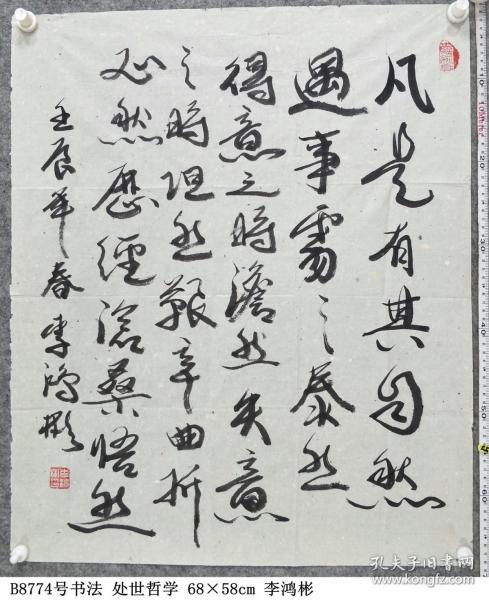 凡是有其自然
遇事處之泰然
得意之時澹然失意
之時坦然艱辛曲折
必然歷經滄桑悟然
壬辰年春李鴻彬
孔夫子旧书网
B8774号书法 处世哲学 68×58cm 李鸿彬